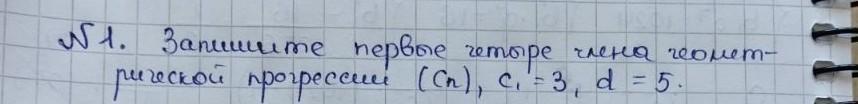 №1. Запишите первые четыре члена геомет-
рической прогрессии (Cn), c₁ = 3, d = 5.